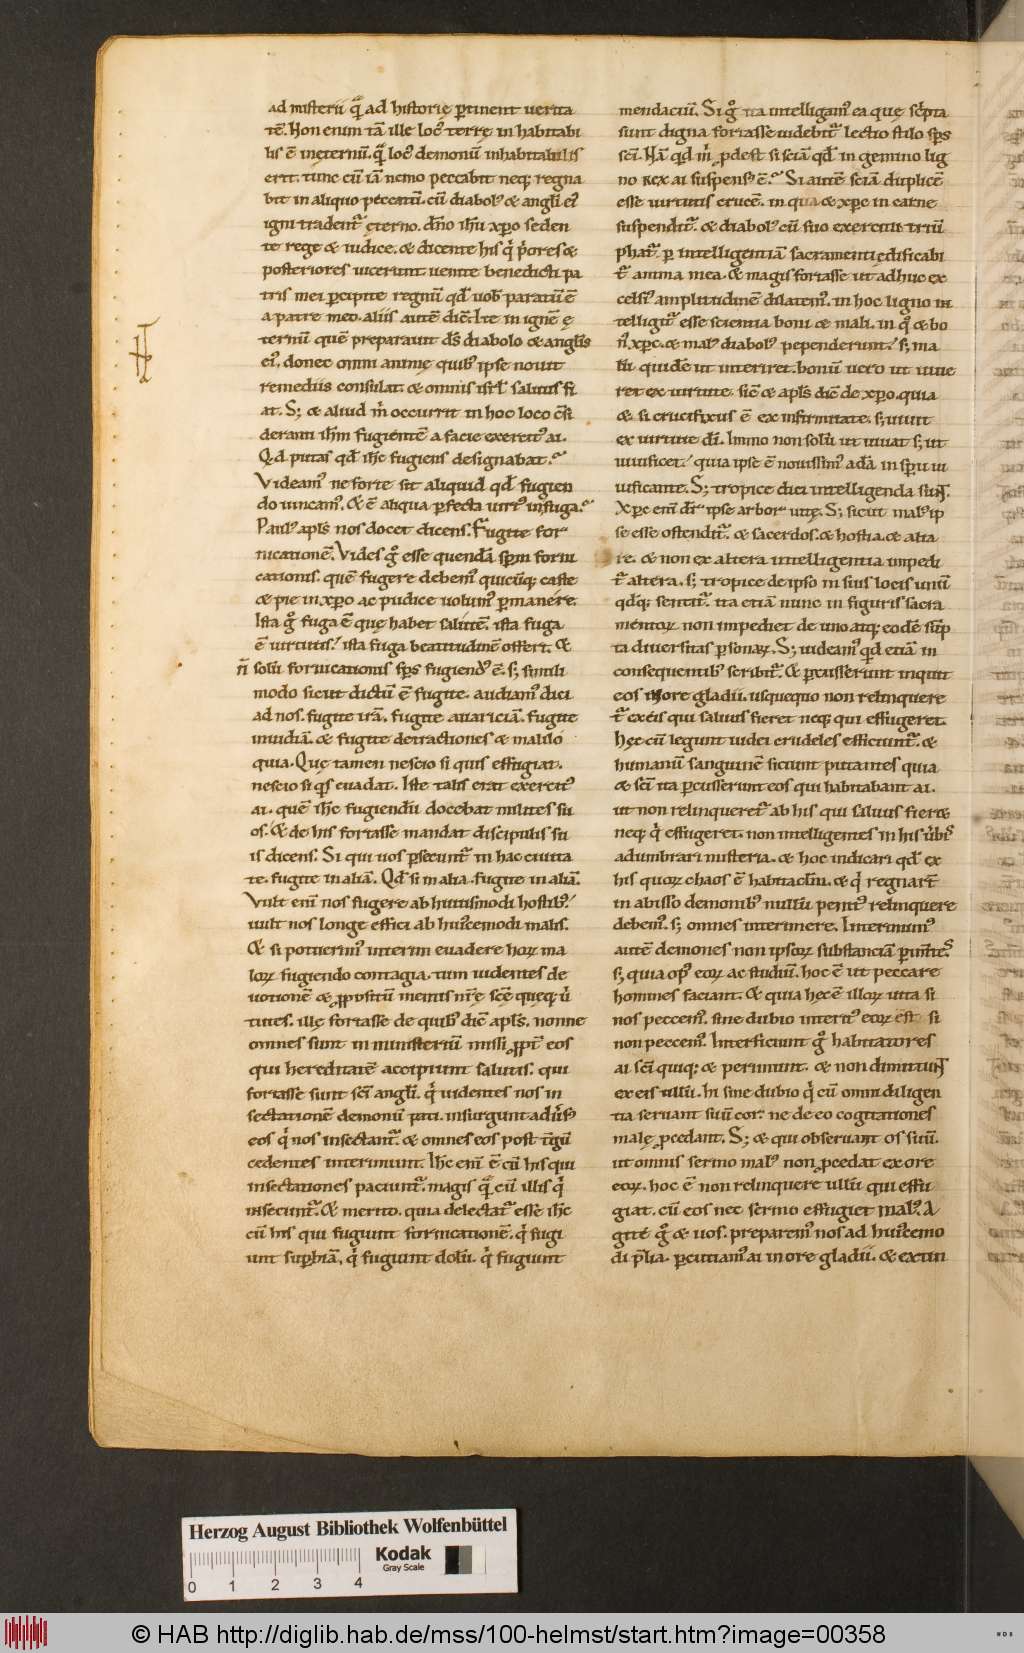 ad misterii q̄ ad historię ꝑtinent uerita
tē. Non enim tā ille loc᷒ terrę inhabitabi
lis ē ineternū. q̄ loc᷒ demonū inhabitabilis
erit. tunc cū iā nemo peccabit neq; regna
bit in aliquo peccatū. cū diabol᷒ & angli ei᷒
igni tradent᷑ ęterno. dño ihū xp̄o seden
te rege & iudice. & dicente his q̇ ṗores &
posteriores uicerunt uenite benedicti pa
tris mei ꝑcipite regnū qđ uob̄ paratū ē
a patre meo. aliis autē dic̄. Ite in ignē ę
ternū quē preparauit ds̄ diabolo & anglis
ei᷒. donec omni animę quib᷒ ipse nouit
remediis consulat. & omnis isrl̄ saluus fi
at. S; & aliud m̄ occurrit in hoc loco c̄si
deranti ih̄m fugientē a facie exercit᷒ ai.
Qd putas qđ ih̄c fugiens designabat.
Videam᷒ ne forte sit aliquid qđ fugien
do uincam᷒. & ē aliqua ꝑfecta uirt᷒ in fuga.
Paul᷒ apl̄s nos docet dicens. Fugite for
nicationē. Vides gͦ esse quendā sp̄m forni
cationis. quē fugere debem᷒ quicūq; caste
& pie in xp̄o ac pudice uolum᷒ ꝑmanere.
Ista gͦ fuga ē quę habet salutē. ista fuga
ē uirtutis. ista fuga beatitudinē offert. &
n̄ solū fornicationis sp̄s fugiend᷒ ē. s; simili
modo sicut dictū ē fugite. audiam᷒ dici
ad nos. fugite irā. fugite auariciā. fugite
inuidiā. & fugite detractiones & malilo
quia. Quę tamen nescio si quis effugiat.
nescio si q̇s euadat. Iste talis erat exercit᷒
ai. quē ih̄c fugiendū docebat milites su
os. & de his fortasse mandat discipulis su
is dicens. Si qui uos ꝑsecunt᷑ in hac ciuita
te. fugite in aliā. Qđ si in alia. fugite in aliā.
Vult enī nos fugere ab hui᷒modi hostib᷒.
uult nos longe effici ab hui᷒cemodi malis.
& si potuerim᷒ interim euadere hoꝝ ma
loꝝ fugiendo contagia. tum uidentes de
uotionē & ꝓpositū mentis nr̄ę sc̄ę queq; ui
tutes. illę fortasse de quib᷒ dic̄ apl̄s. nonne
omnes sunt in ministeriū missi ꝓpt̄ eos
qui hereditatē accipiunt salutis. qui
fortasse sunt sc̄i angli. q̇ uidentes nos in
sectationē demonū pati. insurgunt adu᷒s᷒
eos q̇ nos insectant᷑. & omnes eos post t̄gū
cedentes interimunt. Ih̄c enī ē cū his qui
insectationes paciunt᷑. magis q̄ cū illis q̇
insecunt᷑. & merito. quia delectat᷑ esse ih̄c
cū his qui fugiunt fornicationē. q̇ fugi
unt suꝑbiā. q̇ fugiunt dolū. q̇ fugiunt
mendaciū. Si gͦ ita intelligam᷒ ea quę sc̄pta
sunt digna fortasse uidebit᷑ lectio stilo sp̄s
sc̄i. Nā qđ m̄ ꝓdest si sciā qđ in gemino lig
no rex ai suspens᷒ ē. Si autē sciā duplicē
esse uirtutis crucē. in qua & xp̄c in carne
suspendit᷑. & diabol᷒ cū suo exercitu triū
phat᷑. ꝑ intelligentiā sacramenti ędificabi
t᷑ anima mea. & magis fortasse ut adhuc ex
celsi᷒ amplitudinē dilatem᷒. in hoc ligno in
telligit᷑ esse scientia boni & mali. in q᷒ & bo
n᷒ xp̄c. & mal᷒ diabol᷒ pependerunt. s; ma
l᷒ quidē ut interiret. bonū uero ut uiue
ret ex uirtute. sic̄ & apl̄s dic̄ de xp̄o. quia
& si crucifixus ē ex infirmitate. s; uiuit
ex uirtute dī. Immo non solū ut uiuat s; ut
uiuificet. quia ipse ē nouissim᷒ adā in sp̄u ui
uificante. S; tropice dici intelligenda sunt.
Xp̄c enī dr̄ ipse arbor uitę. S; sicut mal᷒ ip
se esse ostendit᷑. & sacerdos. & hostia. & alta
re. & non ex altera intelligentia impedi
t᷑ altera. s; tropice de ipso in suis locis unū
qđq; sentit᷑. ita etiā nunc in figuris sacra
mentoꝝ non impediet de uno atq; eodē sūp
ta diuersitas ꝑsonaꝝ. S; uideam᷒ qd etiā in
consequentib᷒ scribit᷑. & ꝑcusserunt inquit
eos in ore gladii. usquequo non relinquere
t᷑ ex eis qui saluus fieret neq; qui effugeret.
Hęc cū legunt iudei crudeles efficiunt᷑. &
humanū sanguinē sitiunt putantes quia
& sc̄i ita ꝑcusserunt eos qui habitabant ai.
ut non relinqueret᷑ ab his qui saluus fieret
neq; q̇ effugeret. non intelligentes in his u̇bis
adumbrari misteria. & hoc indicari qđ ex
his quoꝝ chaos ē habitaclm̄. & q̇ regnant
in abisso demonib᷒ nullū penit᷒ relinquere
debem᷒. s; omnes interimere. Interimim᷒
autē demones non ipsoꝝ substanciā ꝑimentes.
s; quia op᷒ eoꝝ ac studiū. hoc ē ut peccare
homines faciant. & quia hęc ē illoꝝ uita si
nos peccem᷒. sine dubio interit᷒ eoꝝ est si
non peccem᷒. Interficiunt gͦ habitatores
ai sc̄i quiq; & perimunt. & non dimittunt
ex eis ullū. hi sine dubio q̇ cū omni diligen
tia seruant suū cor. ne de eo cogitationes
malę ꝓcedant. S; & qui obseruant os suū.
ut omnis sermo mal᷒ non ꝓcedat ex ore
eoꝝ. hoc ē non relinquere ullū qui effu
giat. cū eos nec sermo effugiet mal᷒. A
gite gͦ & uos. preparem᷒ nos ad hui᷒cemo
di p̄lia. ꝑcutiam᷒ ai in ore gladii. & extin
Herzog August Bibliothek Wolfenbüttel
Kodak
Gray Scale
0 1 2 3 4
© HAB http://diglib.hab.de/mss/100-helmst/start.htm?image=00358